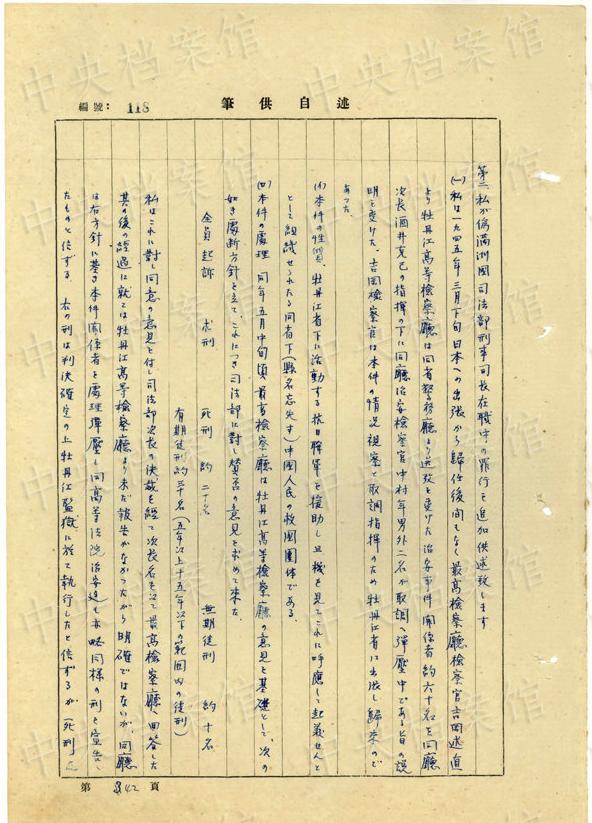 編號: 118
筆供自述
第二、私が偽満洲国司法部刑事司長在職中の罪行を追加供述致します
(一)私は一九四五年三月下旬日本への出張から帰任後間もなく最高検察廳検察官吉岡述直
より牡丹江高等検察廳は同省警務廳より送致を受けた治安事件関係者約六十名を同廳
次長酒井克己の指揮の下に同廳治安検察官中村年男外二名が取調べ弾圧中である旨の説
明を受けた。吉岡検察官は本件の情況視察と取調指揮のため牡丹江省に出張し帰来ので
あった。
(イ)本件の性質、牡丹江省下に活動する抗日聯軍を援助し且機を見てこれに呼應して起義せんと
として組織せられたる同省下(縣名忘失す)中国人民の救国團体である。
(ロ)本件の處理 同年五月中旬頃最高検察廳は牡丹江高等検察廳の意見を基礎として、次の
如き處断方針を立て、これにつき司法部に対し賛否の意見を求めて来た
全員起訴 求刑 死刑 約二十名 無期徒刑 約十名
有期徒刑約三十名(五年以上十五年以下の範囲内の徒刑)
私はこれに対し同意の意見を付し司法部次長の決裁を経て次長名を以て最高検察廳へ回答した
其の後の経過に就ては牡丹江高等検察廳より未だ報告がなかつたから明確ではないが、同廳
は右方針に基き本件関係者を處理弾圧し同高等法院治安廷も亦略同様の刑を宣告し
たものと信ずる。右の刑は判決確定の上牡丹江監獄に於て執行したと信ずるが(死刑
第 342 頁
中央档案馆